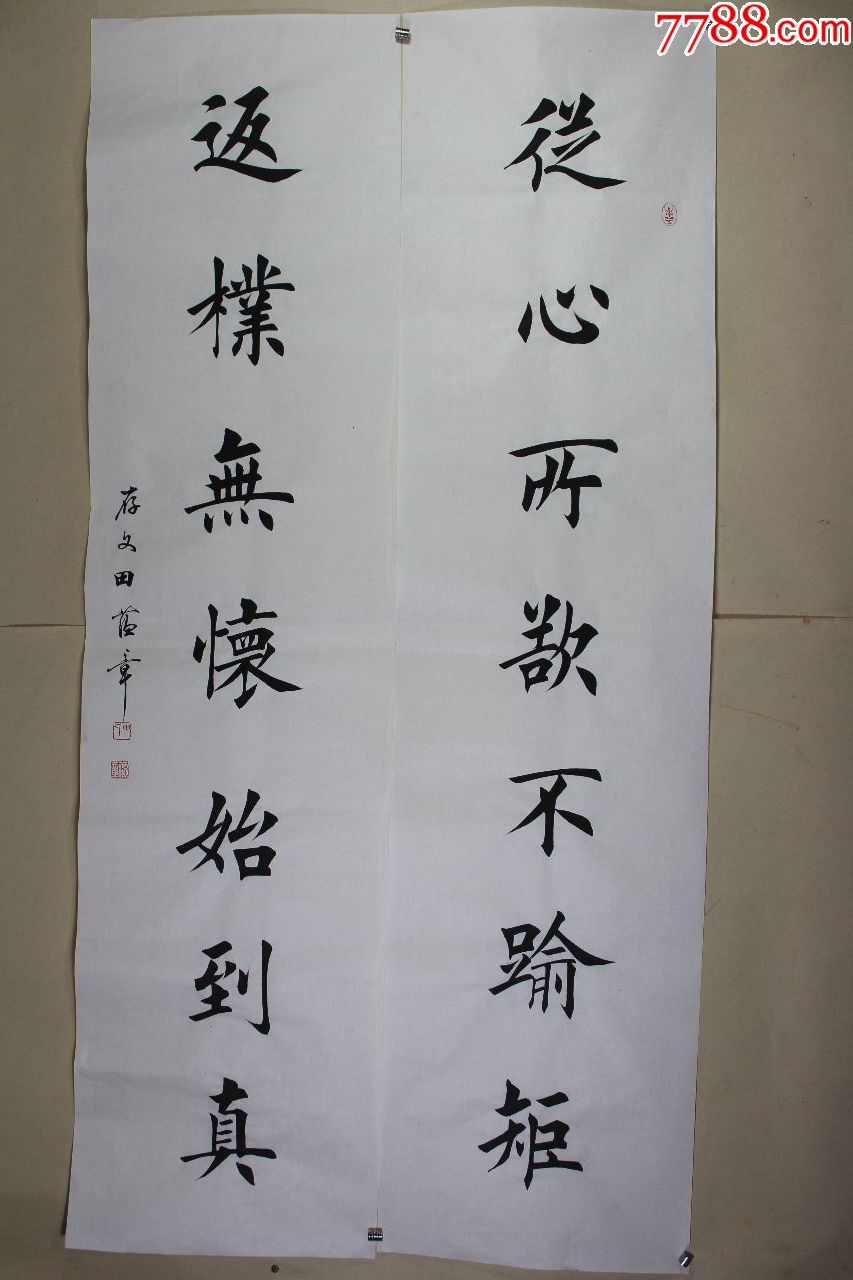 7788.com
從心所欲不踰矩
返樸無懷始到真
存文田蕴章